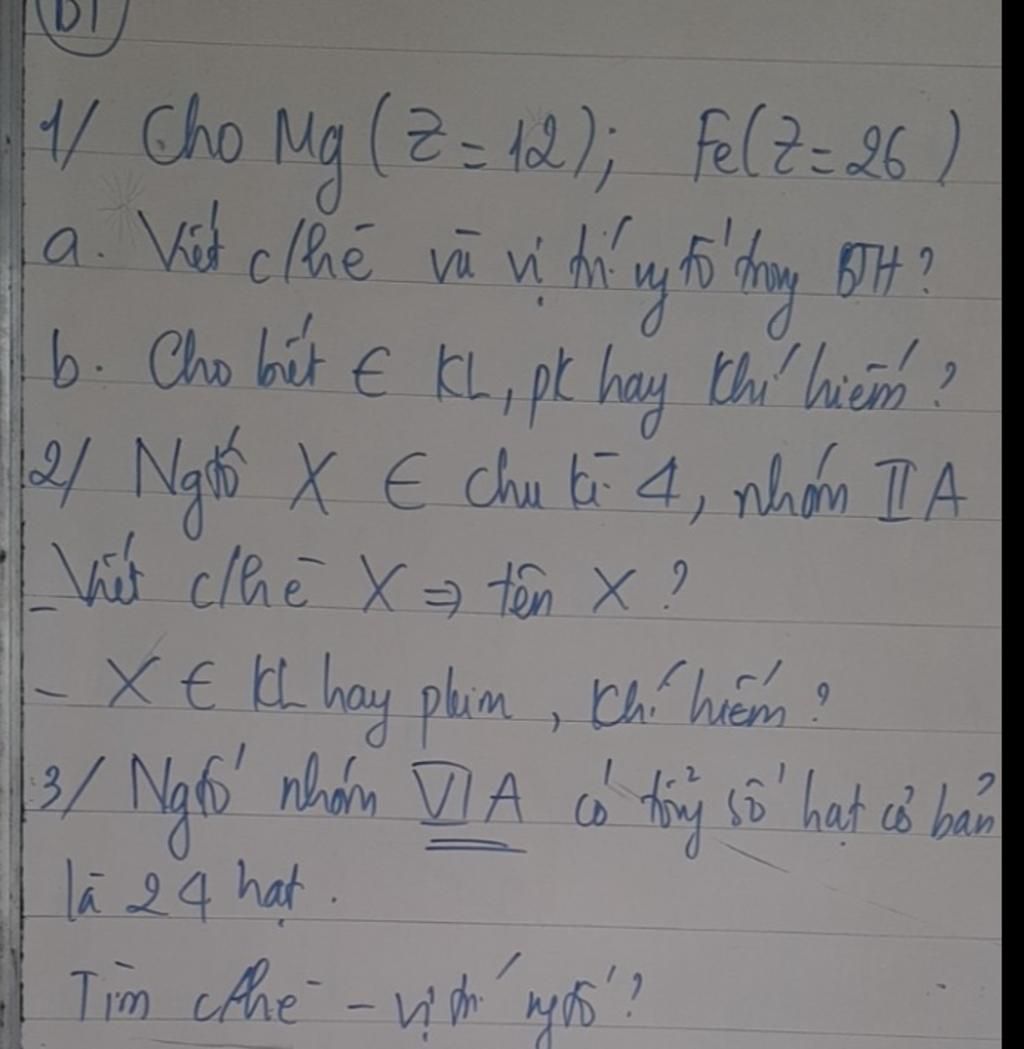 1/ Cho Mg (Z = 12); Fe (Z = 26)
a. Viết c/hē và vị trí ng tố trong BTH?
b. Cho biết ∈ KL, pk hay khí hiếm?
2/ Ng tố X ∈ chu kì 4, nhóm II A
- Viết c/hē X ⇒ tên X?
- X ∈ KL hay phim, khí hiếm?
3/ Ng tố nhóm VI A có tổng số hạt cơ bản
là 24 hạt.
Tìm c/hē - vị trí ng tố?